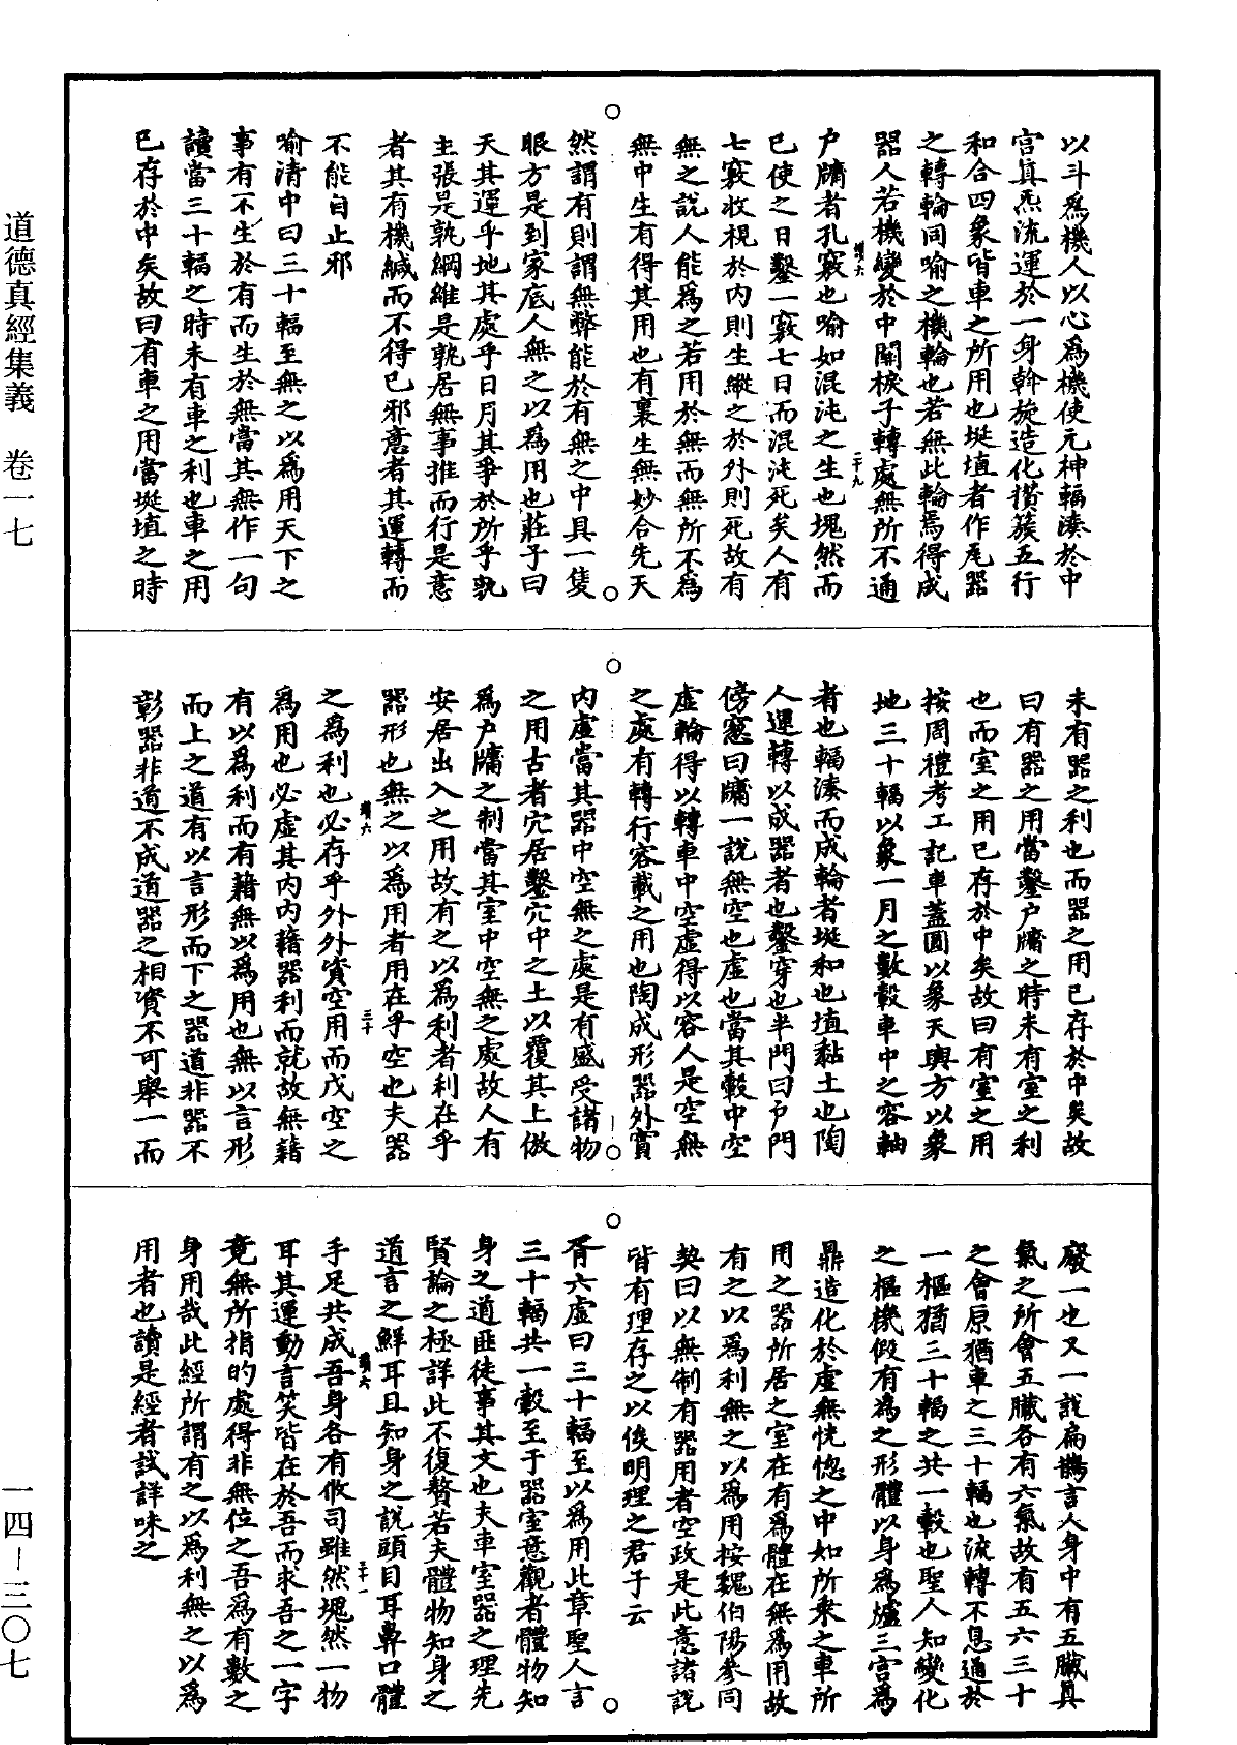 道德真經集義　卷一七
一四—三〇七
以斗爲機人以心爲機使元神輻湊於中
宫真炁流運於一身斡旋造化攢簇五行
和合四象皆車之所用也埏埴者作瓦器
之轉輪同喻之機輪也若無此輪焉得成
器人若機變於中關棙子轉處無所不通
戶牖者孔竅也喻如混沌之生也塊然而
已使之日鑿一竅七日而混沌死矣人有
七竅收視於内則生縱之於外則死故有
無之說人能爲之若用於無而無所不爲
無中生有得其用也有裏生無妙合先天
然謂有則謂無弊能於有無之中具一隻
眼方是到家底人無之以爲用也莊子曰
天其運乎地其處乎日月其爭於所乎孰
主張是孰綱維是孰居無事推而行是意
者其有機緘而不得已邪意者其運轉而
不能自止邪
喻清中曰三十輻至無之以爲用天下之
事有不生於有而生於無當其無作一句
讀當三十輻之時未有車之利也車之用
已存於中矣故曰有車之用當埏埴之時
未有器之利也而器之用已存於中矣故
曰有器之用當鑿戶牖之時未有室之利
也而室之用已存於中矣故曰有室之用
按周禮考工記車蓋圓以象天輿方以象
地三十輻以象一月之數轂車中之容軸
者也輻湊而成輪者埏和也埴黏土也陶
人運轉以成器者也鑿穿也半門曰戶門
傍窓曰牖一說無空也虛也當其轂中空
虛輪得以轉車中空虛得以容人是空無
之處有轉行容載之用也陶成形器外實
内虛當其器中空無之處是有盛受諸物
之用古者穴居鑿穴中之土以覆其上倣
爲戶牖之制當其室中空無之處故人有
安居出入之用故有之以爲利者利在乎
器形也無之以爲用者用在乎空也夫器
之爲利也必存乎外外實空用而成空之
爲用也必虛其内内藉器利而就故無藉
有以爲利而有藉無以爲用也無以言形
而上之道有以言形而下之器道非器不
彰器非道不成道器之相資不可舉一而
廢一也又一說扁鵲言人身中有五臟真
氣之所會五臟各有六氣故有五六三十
之會原猶車之三十輻也流轉不息通於
一樞猶三十輻之共一轂也聖人知變化
之樞機假有爲之形體以身爲爐三宫爲
鼎造化於虛無恍惚之中如所乘之車所
用之器所居之室在有爲體在無爲用故
有之以爲利無之以爲用按魏伯陽參同
契曰以無制有器用者空政是此意諸說
皆有理存之以俟明理之君子云
胥六虛曰三十輻至以爲用此章聖人言
三十輻共一轂至于器室意觀者體物知
身之道匪徒事其文也夫車室器之理先
賢論之極詳此不復贅若夫體物知身之
道言之鮮耳且知身之說頭目耳鼻口體
手足共成吾身各有攸司雖然塊然一物
耳其運動言笑皆在於吾而求吾之一字
竟無所指的處得非無位之吾爲有數之
身用哉此經所謂有之以爲利無之以爲
用者也讀是經者試詳味之